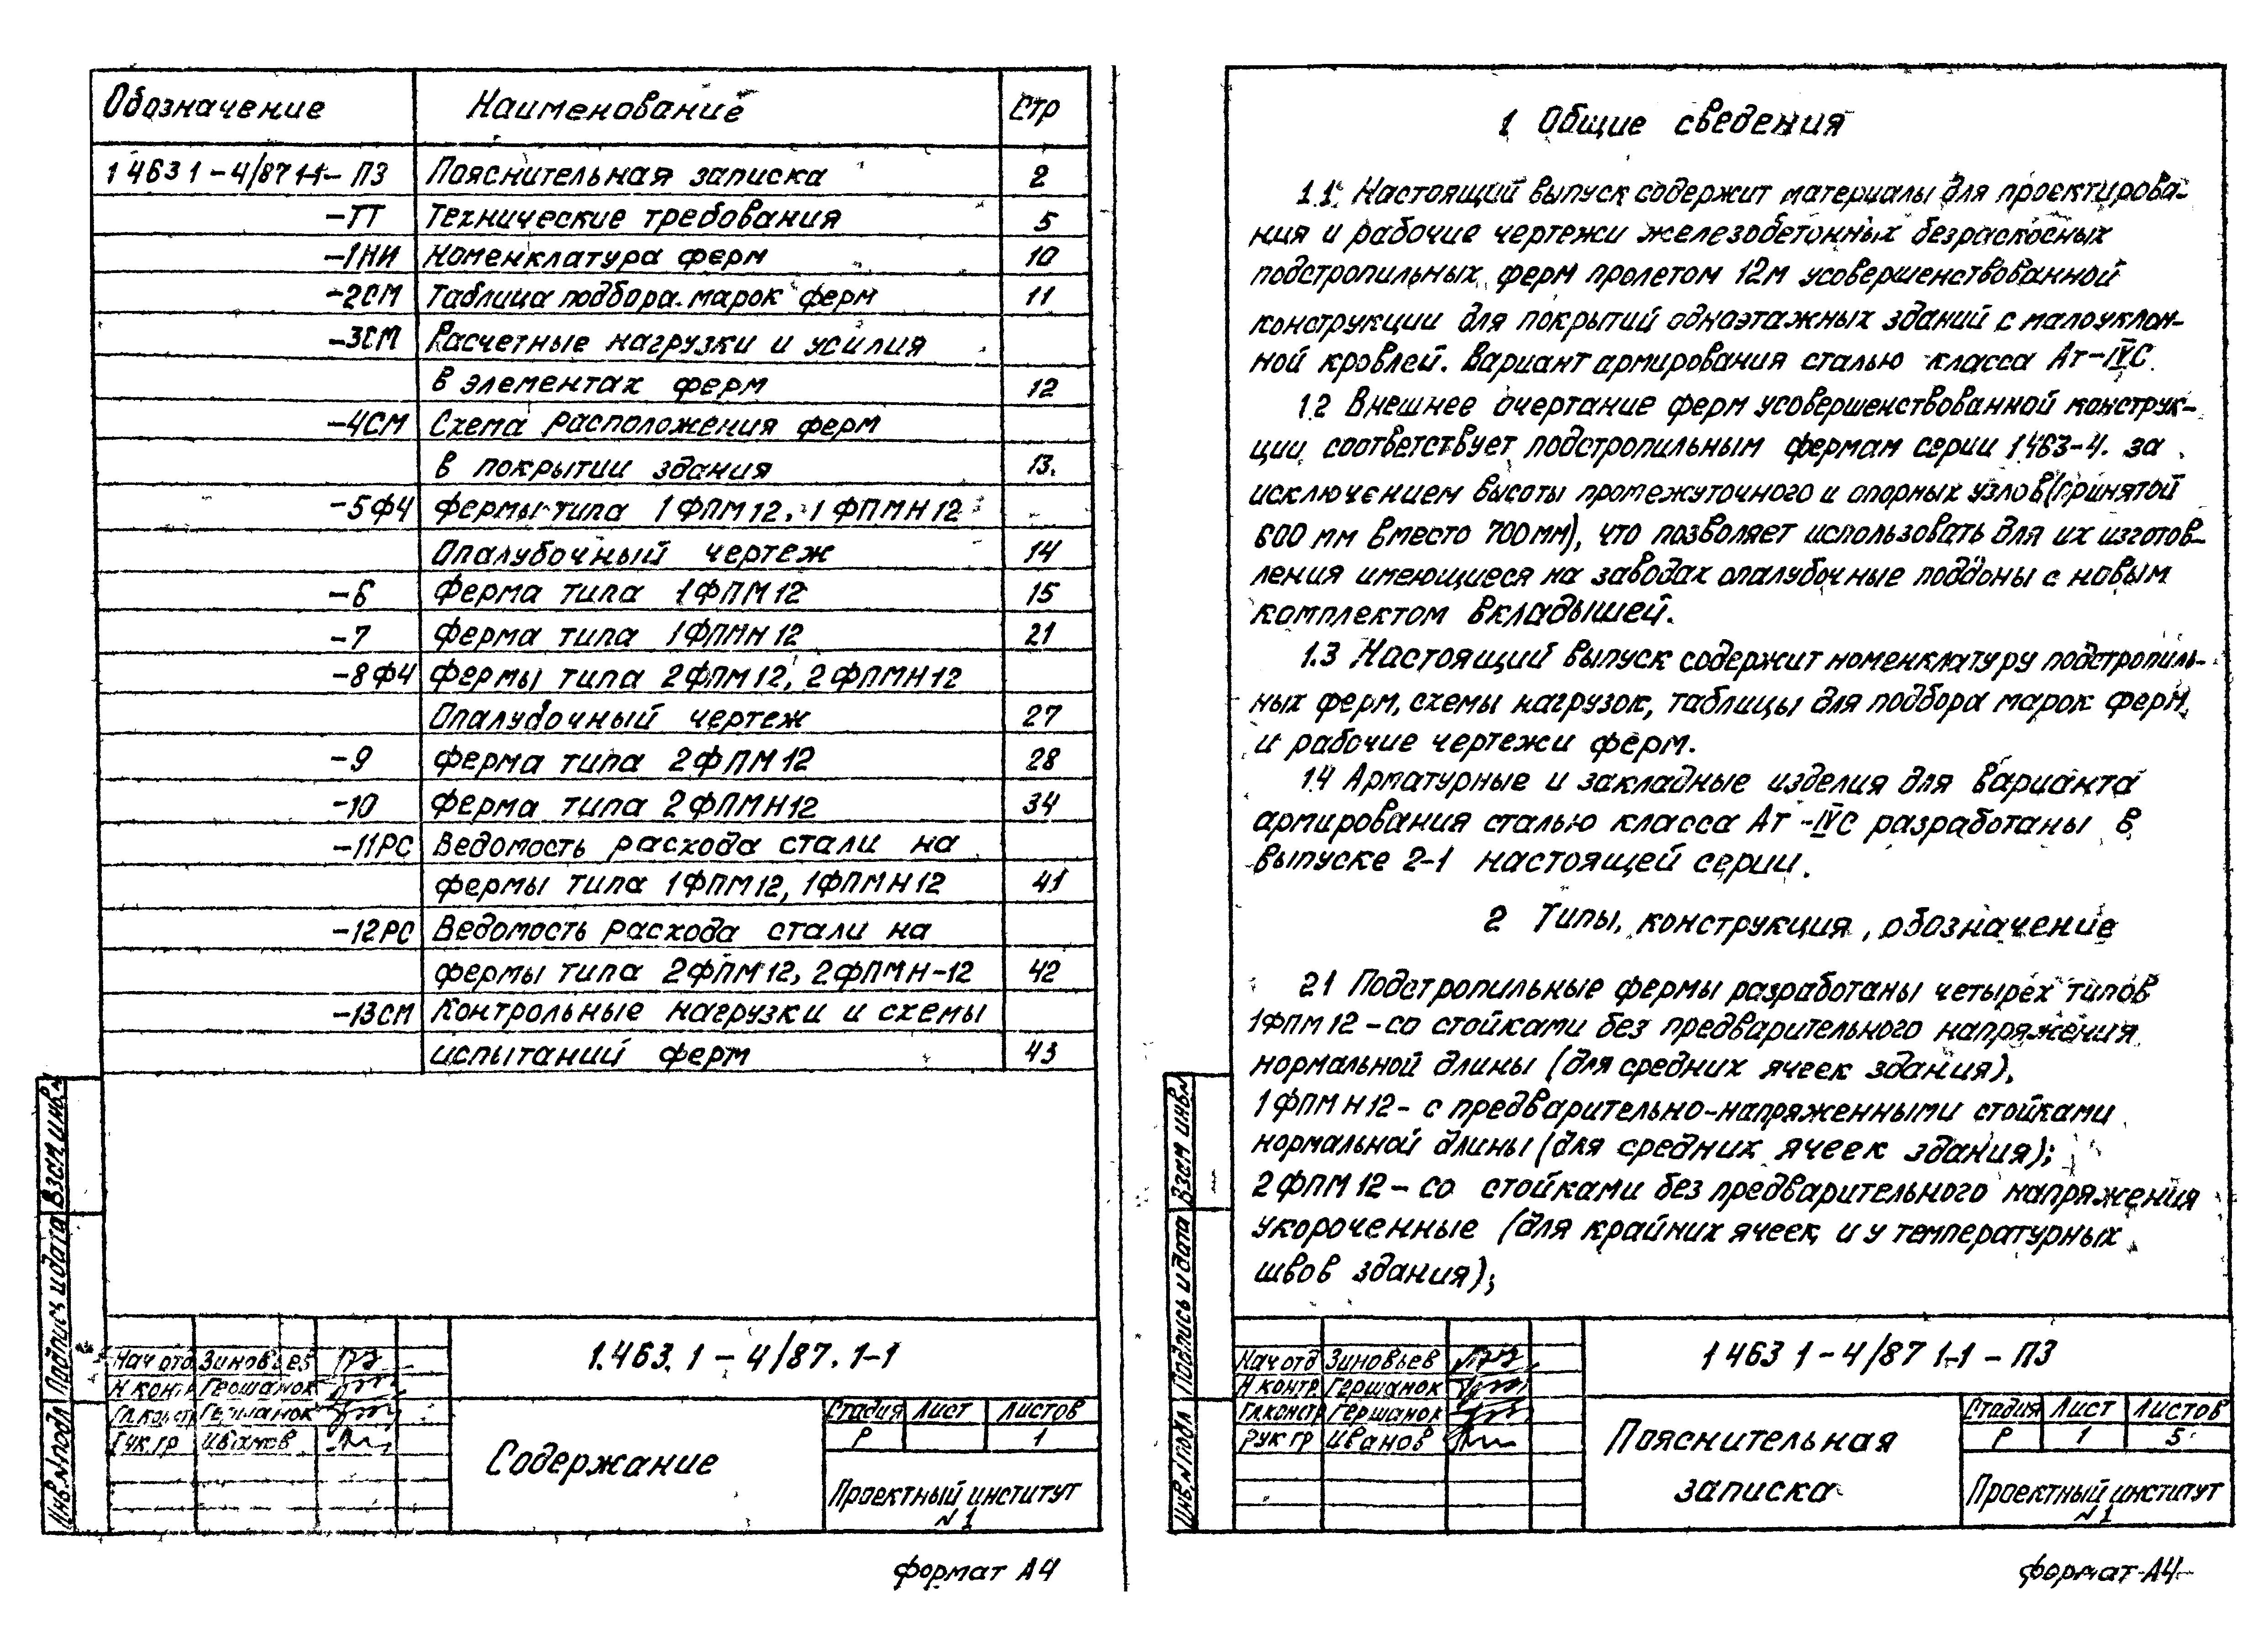 Обозначение Наименование Стр
1 463 1-4/87 1-1- ПЗ Пояснительная записка 2
-ТТ Технические требования 5
-1НИ Номенклатура ферм 10
-2СМ Таблица подбора марок ферм 11
-3СМ Расчетные нагрузки и усилия
в элементах ферм 12
-4СМ Схема расположения ферм
в покрытии здания 13.
-5Ф4 Фермы типа 1ФПМ12, 1ФПМН12
Опалубочный чертеж 14
-6 Ферма типа 1ФПМ12 15
-7 Ферма типа 1ФПМН12 21
-8Ф4 Фермы типа 2ФПМ12, 2ФПМН12
Опалубочный чертеж 27
-9 Ферма типа 2ФПМ12 28
-10 Ферма типа 2ФПМН12 34
-11РС Ведомость расхода стали на
фермы типа 1ФПМ12, 1ФПМН12 41
-12РС Ведомость расхода стали на
фермы типа 2ФПМ12, 2ФПМН-12 42
-13СМ Контрольные нагрузки и схемы
испытаний ферм 43
Взам инв.N
Подпись и дата
Инв.N подл
Нач отд Зиновьев
Н контр Гершанок
Гл.констр Гершанок
Рук.гр Иванов
1.463.1-4/87.1-1
Содержание
Стадия Лист Листов
Р 1
Проектный институт
N 1
Формат А4
1 Общие сведения
1.1. Настоящий выпуск содержит материалы для проектирова-
ния и рабочие чертежи железобетонных безраскосных
подстропильных ферм пролетом 12м усовершенствованной
конструкции для покрытий одноэтажных зданий с малоуклон-
ной кровлей. Вариант армирования сталью класса Ат-IVС.
1.2 Внешнее очертание ферм усовершенствованной конструк-
ции соответствует подстропильным фермам серии 1 463-4. за
исключением высоты промежуточного и опорных узлов (принятой
600 мм вместо 700мм), что позволяет использовать для их изготов-
ления имеющиеся на заводах опалубочные поддоны с новым
комплектом вкладышей.
1.3 Настоящий выпуск содержит номенклатуру подстропиль-
ных ферм, схемы нагрузок, таблицы для подбора марок ферм,
и рабочие чертежи ферм.
1.4 Арматурные и закладные изделия для варианта
армирования сталью класса Ат-IVС разработаны в
выпуске 2-1 настоящей серии.
2 Типы, конструкция, обозначение
2.1 Подстропильные фермы разработаны четырех типов
1ФПМ12-со стойками без предварительного напряжения
нормальной длины (для средних ячеек здания),
1ФПМН12- с предварительно-напряженными стойками
нормальной длины (для средних ячеек здания);
2ФПМ12-со стойками без предварительного напряжения
укороченные (для крайних ячеек и у температурных
швов здания);
Взам инв.N
Подпись и дата
Инв.N подл
Нач отд Зиновьев
Н контр. Гершанок
Гл.констр Гершанок
Рук гр Иванов
1 463 1-4/87 1-1-ПЗ
Пояснительная
записка
Стадия Лист Листов
Р 1 5
Проектный институт
N 1
Формат А4